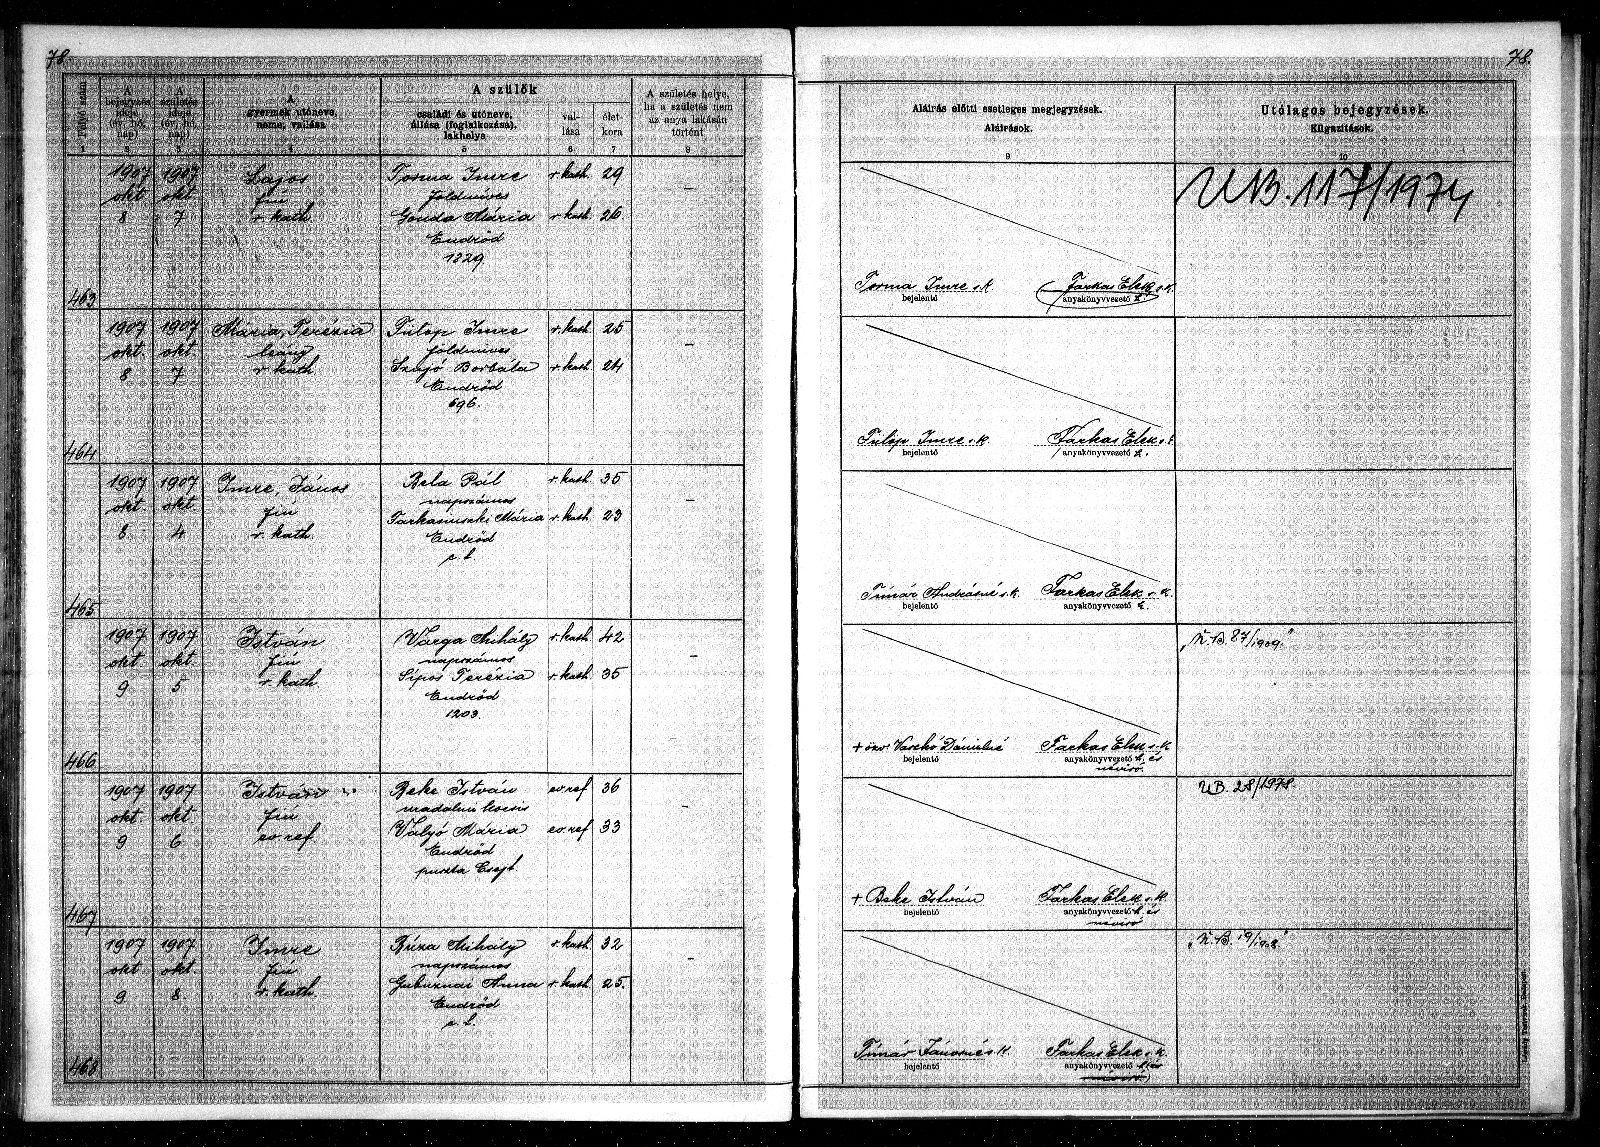 78.
78.
Folyó szám
A bejegyzés ideje (év, hó, nap)
A születés ideje (év, hó, nap)
A gyermek utóneve, neme, vallása
A szülők
családi és utóneve, állása (foglalkozása), lakhelye
vallása
életkora
A születés helye, ha a születés nem az anya lakásán történt
Aláírás előtti esetleges megjegyzések.
Aláírások.
Utólagos bejegyzések.
Kiigazítások.
1 2 3 4 5 6 7 8 9 10
1907 1907 Lajos Torma Imre r. kath. 29 –
okt okt fiú földmíves
8 7 r. kath. Gonda Mária r. kath. 26
Endrőd
1229.
463
Torma Imre s.k. Farkas Elek s.k.
bejelentő anyakönyvvezető h.
UB. 117/1974
1907 1907 Mária, Terézia Fülöp Imre r. kath. 25 –
okt. okt. leány földmíves
8 7 r. kath. Szujó Borbála r. kath. 24
Endrőd
696.
464
Fülöp Imre s.k. Farkas Elek s.k.
bejelentő anyakönyvvezető h.
1907 1907 Imre, János Bela Pál r. kath. 35 –
okt. okt. fiú napszámos
8 4 r. kath. Farkasinszki Mária r. kath. 23
Endrőd
465
Tímár Andrásné s.k. Farkas Elek s.k.
bejelentő anyakönyvvezető h.
1907 1907 István Varga Mihály r. kath. 42 –
okt. okt. fiú napszámos
9 5 r. kath. Sipos Terézia r. kath. 35
Endrőd
1203.
466
+ özv. Vaszkó Dánielné Farkas Elek s.k.
bejelentő anyakönyvvezető h. és
névíró.
„N.B. 87/1909."
1907 1907 István Beke István ev. ref 36 –
okt. okt. fiú uradalmi kocsis
9 6 ev. ref. Valyó Mária ev. ref 33
Endrőd
puszta Csejt.
467
+ Beke István Farkas Elek s.k.
bejelentő anyakönyvvezető h. és
névíró
UB. 28/1978.
1907 1907 Imre Búza Mihály r. kath. 32 –
okt okt. fiú napszámos
9 8. r. kath. Gubuznai Anna r. kath. 25.
Endrőd
468
Tímár Jánosné s.k. Farkas Elek s.k.
bejelentő anyakönyvvezető h. és
névíró
„N.B. 19/1908"